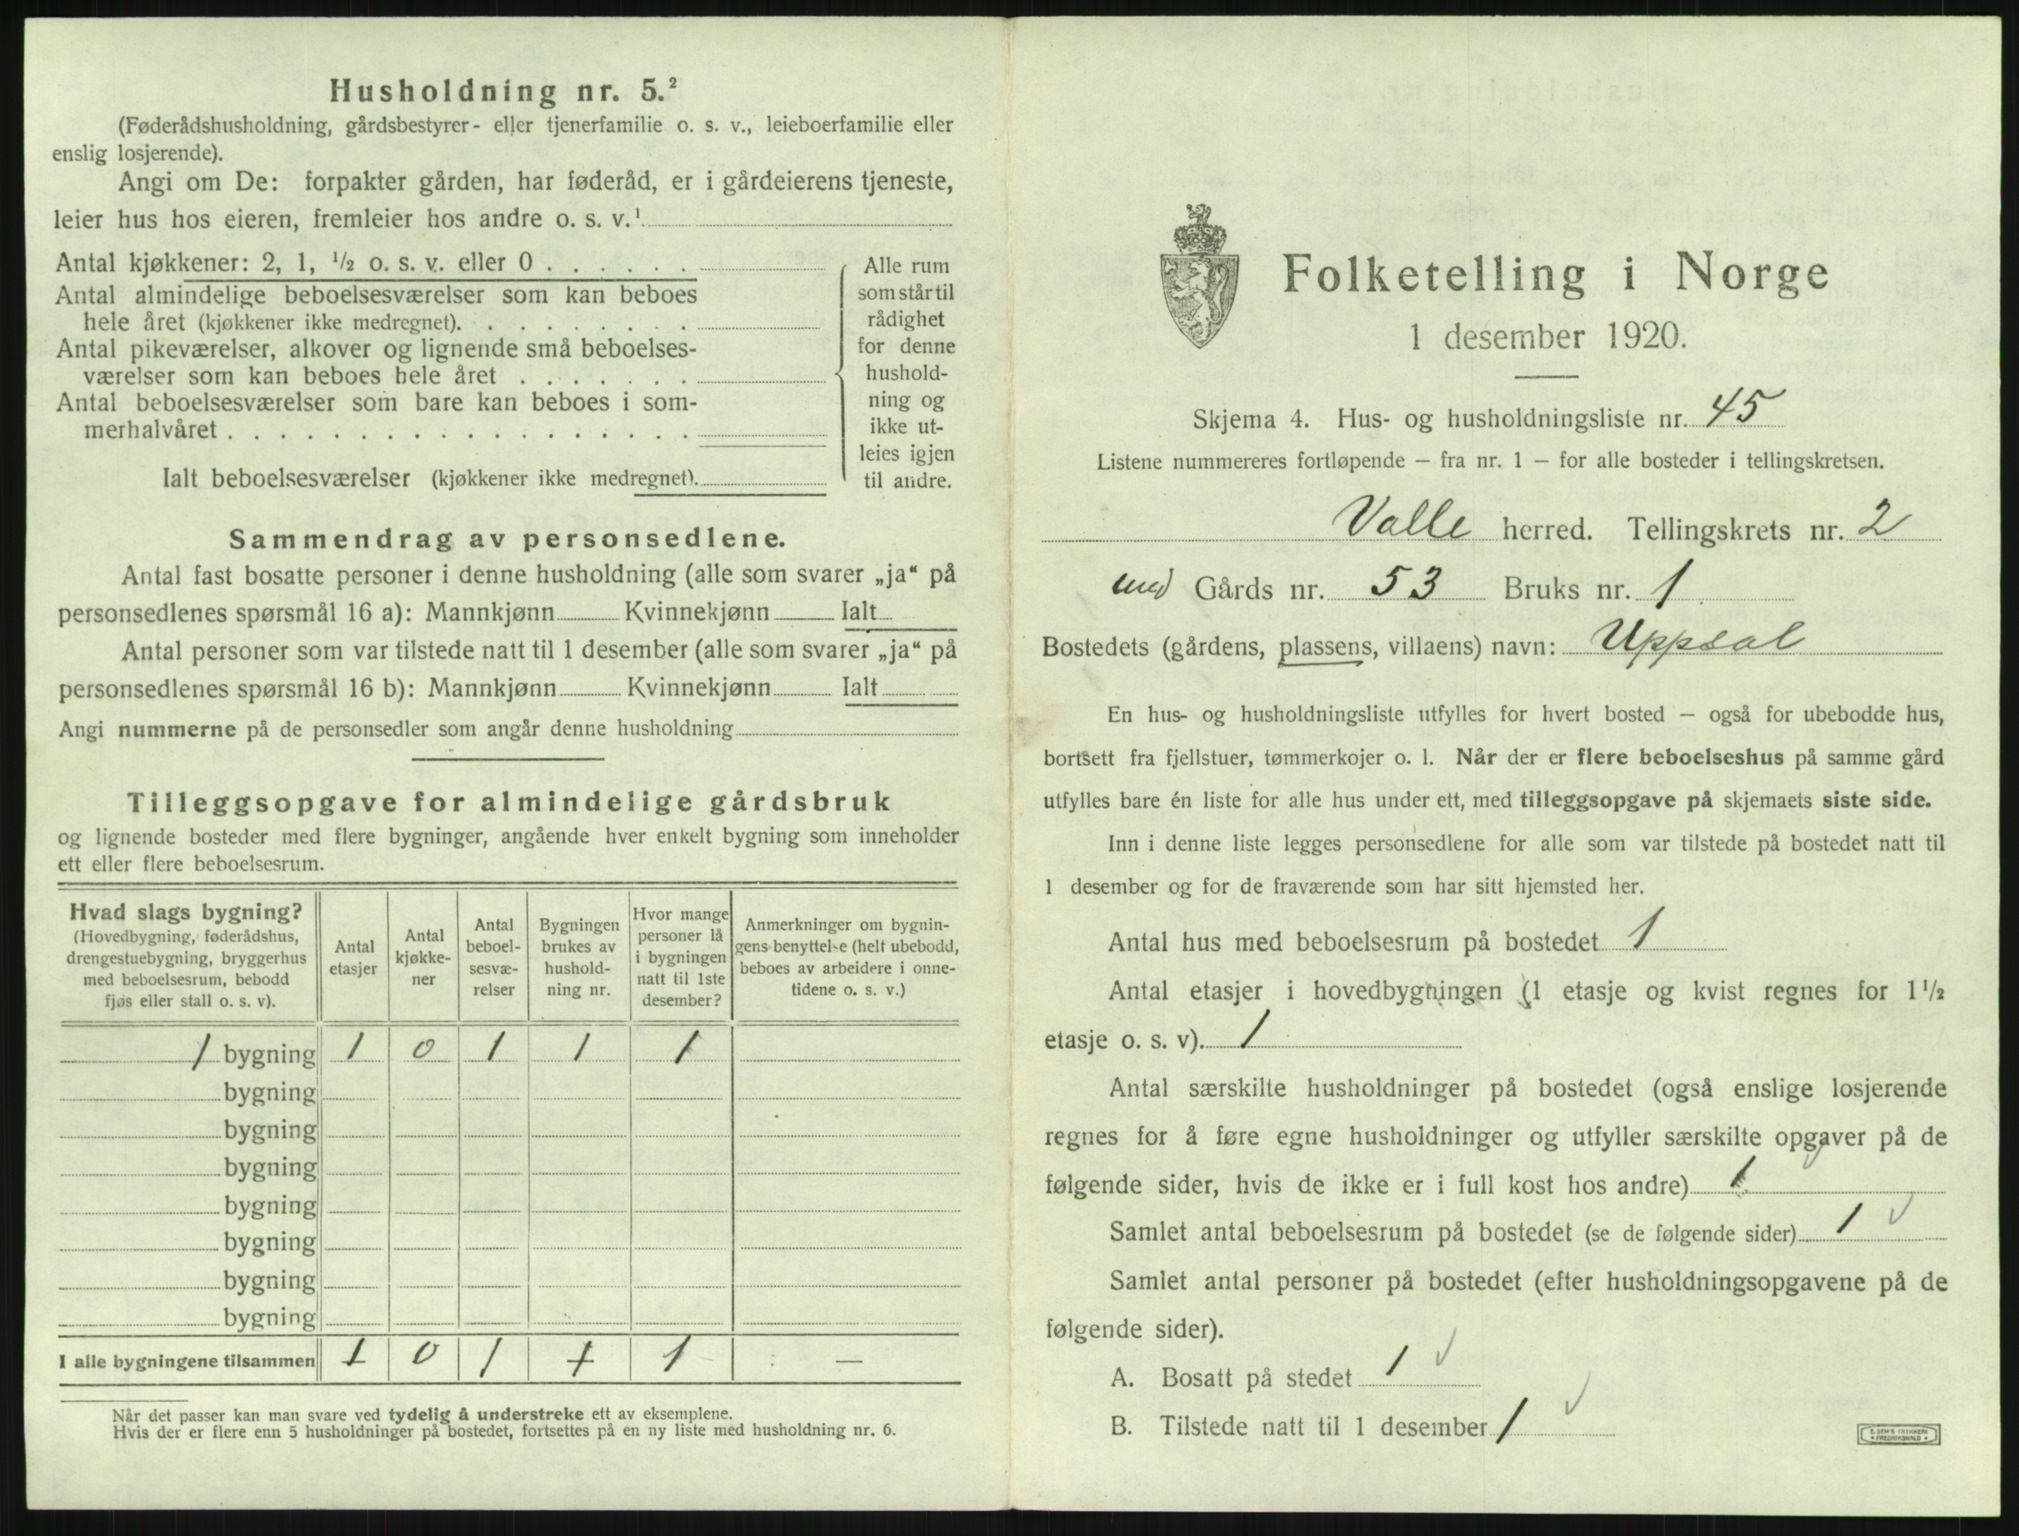 Husholdning nr. 5.²
(Føderådshusholdning, gårdsbestyrer- eller tjenerfamilie o. s. v., leieboerfamilie eller
enslig losjerende).
Angi om De: forpakter gården, har føderåd, er i gårdeierens tjeneste,
leier hus hos eieren, fremleier hos andre o. s. v.¹
Antal kjøkkener: 2, 1, ½ o. s. v. eller 0 . . . . . .
Antal almindelige beboelsesværelser som kan beboes
hele året (kjøkkener ikke medregnet). . . . . . . . .
Antal pikeværelser, alkover og lignende små beboelses-
værelser som kan beboes hele året . . . . . . .
Antal beboelsesværelser som bare kan beboes i som-
merhalvåret . . . . . . . . . . . . . . . . . .
Ialt beboelsesværelser (kjøkkener ikke medregnet).
Alle rum
som står til
rådighet
for denne
hushold-
ning og
ikke ut-
leies igjen
til andre.
Sammendrag av personsedlene.
Antal fast bosatte personer i denne husholdning (alle som svarer „ja“ på
personsedlenes spørsmål 16 a): Mannkjønn Kvinnekjønn Ialt
Antal personer som var tilstede natt til 1 desember (alle som svarer „ja“ på
personsedlenes spørsmål 16 b): Mannkjønn Kvinnekjønn Ialt
Angi nummerne på de personsedler som angår denne husholdning
Tilleggsopgave for almindelige gårdsbruk
og lignende bosteder med flere bygninger, angående hver enkelt bygning som inneholder
ett eller flere beboelsesrum.
Hvad slags bygning?
(Hovedbygning, føderådshus,
drengestuebygning, bryggerhus
med beboelsesrum, bebodd
fjøs eller stall o. s. v).
Antal
etasjer
Antal
kjøkke-
ner
Antal
beboel-
sesvæ-
relser
Bygningen
brukes av
hushold-
ning nr.
Hvor mange
personer lå
i bygningen
natt til 1ste
desember?
Anmerkninger om bygnin-
gens benyttelse (helt ubebodd,
beboes av arbeidere i onne-
tidene o. s. v.)
1 bygning 1 0 1 1 1
bygning
bygning
bygning
bygning
bygning
bygning
bygning
I alle bygningene tilsammen 1 0 1 1 1 —
Når det passer kan man svare ved tydelig å understreke ett av eksemplene.
Hvis der er flere enn 5 husholdninger på bostedet, fortsettes på en ny liste med husholdning nr. 6.
Folketelling i Norge
1 desember 1920.
Skjema 4. Hus- og husholdningsliste nr. 45
Listene nummereres fortløpende — fra nr. 1 — for alle bosteder i tellingskretsen.
Valle herred. Tellingskrets nr. 2
und Gårds nr. 53 Bruks nr. 1
Bostedets (gårdens, plassens, villaens) navn: Uppsal
En hus- og husholdningsliste utfylles for hvert bosted — også for ubebodde hus,
bortsett fra fjellstuer, tømmerkojer o. l. Når der er flere beboelseshus på samme gård
utfylles bare én liste for alle hus under ett, med tilleggsopgave på skjemaets siste side.
Inn i denne liste legges personsedlene for alle som var tilstede på bostedet natt til
1 desember og for de fraværende som har sitt hjemsted her.
Antal hus med beboelsesrum på bostedet 1
Antal etasjer i hovedbygningen (1 etasje og kvist regnes for 1½
etasje o. s. v). 1
Antal særskilte husholdninger på bostedet (også enslige losjerende
regnes for å føre egne husholdninger og utfyller særskilte opgaver på de
følgende sider, hvis de ikke er i full kost hos andre) 1
Samlet antal beboelsesrum på bostedet (se de følgende sider) 1
Samlet antal personer på bostedet (efter husholdningsopgavene på de
følgende sider).
A. Bosatt på stedet 1
B. Tilstede natt til 1 desember 1